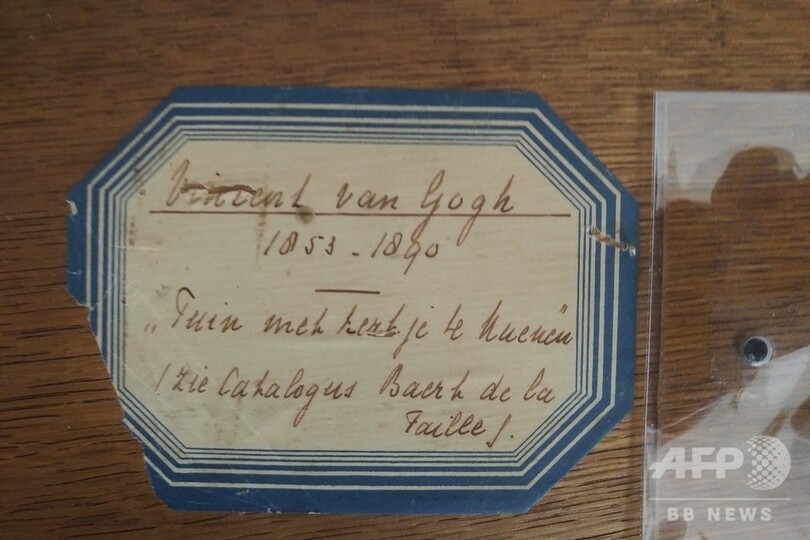 Vincent van Gogh
1853-1890
„Tuin met kerkje te Nuenen"
(zie Catalogus Baert de la
Faille).
AFP
BB NEWS